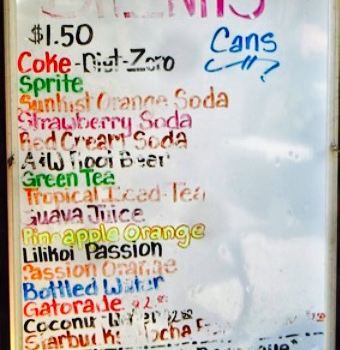 DRINKS
$1.50 Cans
Coke-Diet-Zero
Sprite
Sunkist Orange Soda
Strawberry Soda
Red Cream Soda
A&W Root Beer
Green Tea
Tropical Iced-Tea
Guava Juice
Pineapple Orange
Lilikoi Passion
Passion Orange
Bottled Water
Gatorade $2.00
Coconut Water $2.00
Starbucks Mocha